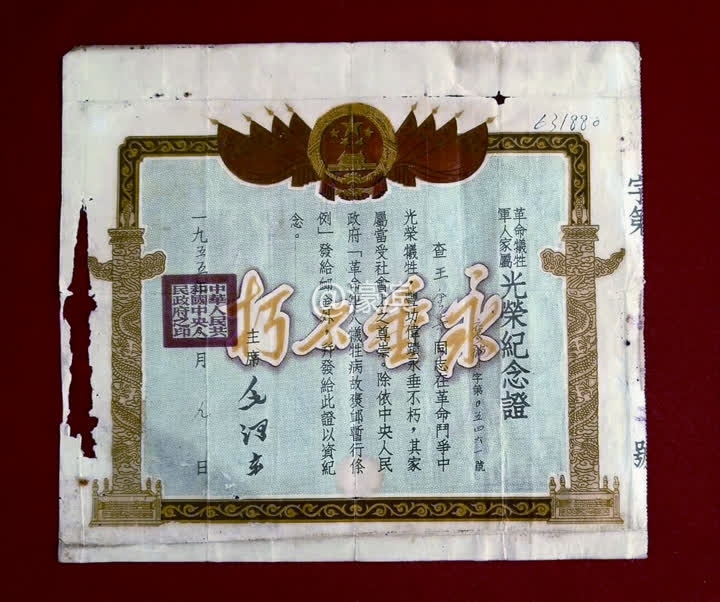 631880
字第
號
革命犧牲
軍人家屬
光榮紀念證
字第0五四六一號
查王
同志在革命鬥爭中
光榮犧牲,豐功偉績永垂不朽,其家
屬當受社會上之尊崇。除依中央人民
政府「革命軍人犧牲病故褒卹暫行條
例」發給卹金外,并發給此證以資紀
念。
主席 毛澤东
一九五五年
月九日
中華人民共
和國中央人
民政府之印
永垂不朽
@豪兵